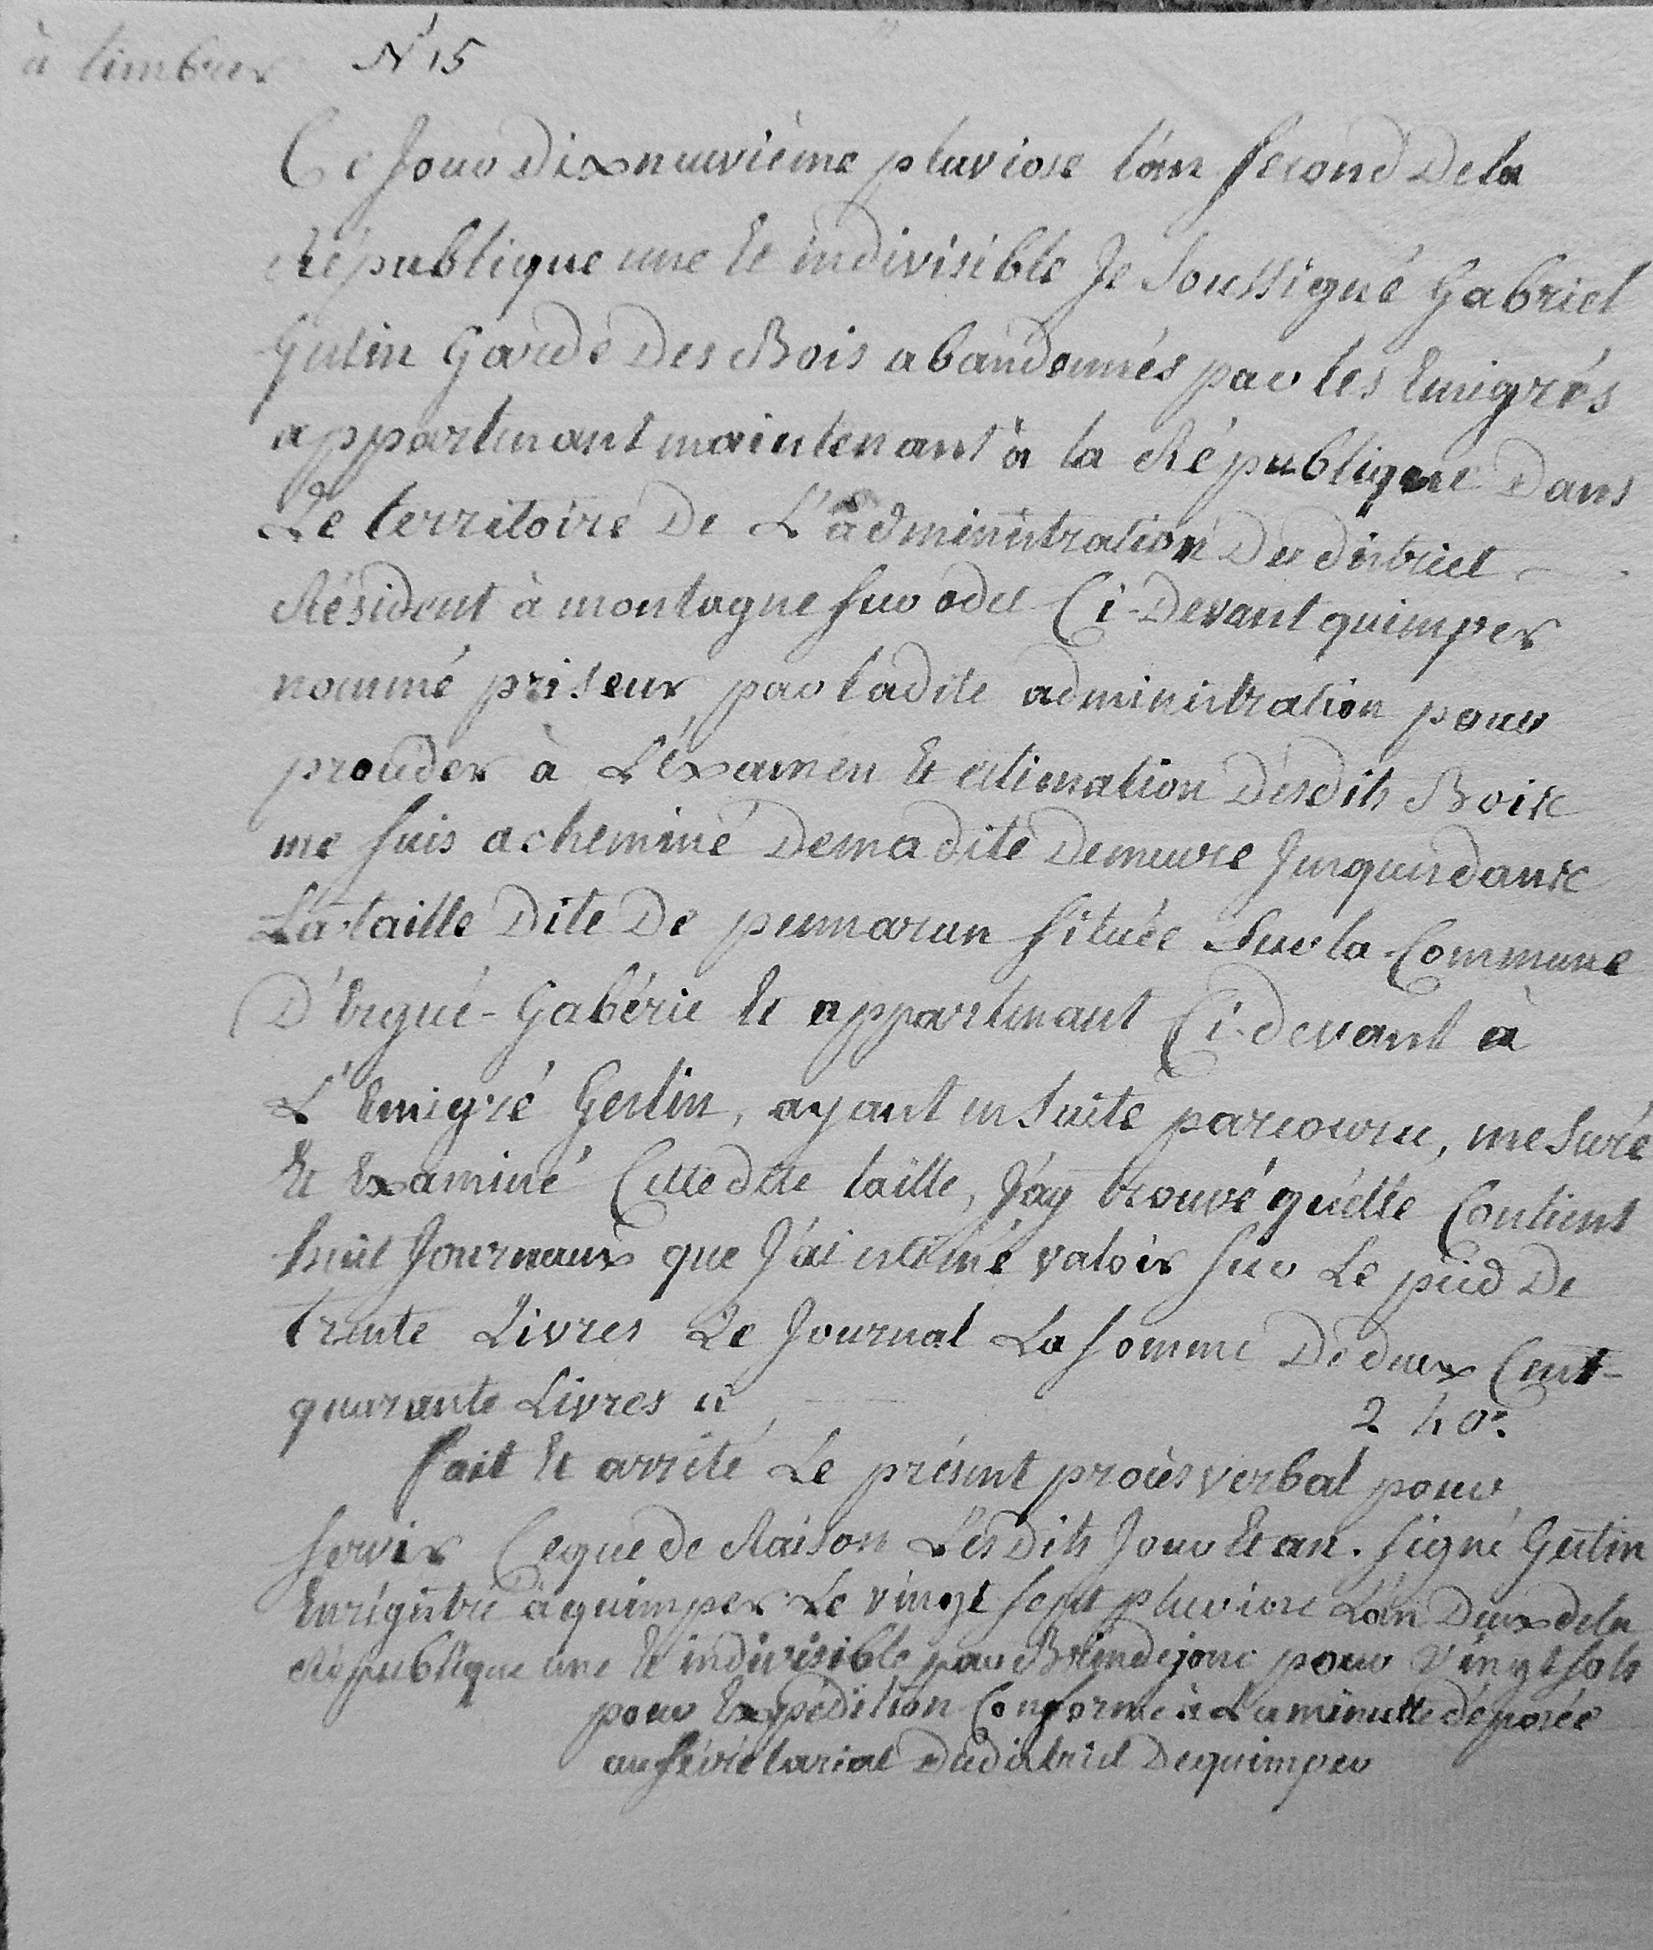 à timbrer N° 15
Ce Jour Dixneuvième pluviose l'an second Dela
République une et indivisible Je soussigné Gabriel
Gestin Garde Des Bois abandonnés par les Emigrés
appartenant maintenant à la République Dans
Le territoire De L'administration Du district
Résident à montagne sur odet Ci-Devant quimper
nommé priseur par ladite administration pour
procéder à L'Examen et estimation Desdits Bois
me suis acheminé Dema dite Demeure Jusques dans
La taille Dite De pennarun située Sur la Commune
D'Ergué-Gabéric et appartenant Ci-devant à
L'Emigré Geslin, ayant ensuite parcouru, mesuré
et Examiné Cette dite taille, J'ay trouvé qu'elle Contient
huit Journaux que J'ai estimé valoir sur Le pied De
trente Livres Le Journal La somme De deux Cent-
quarante Livres ci 240.
fait et arrêté Le présent procès verbal pour
servir Ceque de Raison Lesdits Jour et an. signé Gestin
Enrégistré à quimper Le vingt sept pluviose L'an Deux dela
République une et indivisible par Brindejonc pour vingt sols
pour Expédition Conforme à La minutte déposée
au sécrétariat Dudistrict Dequimper